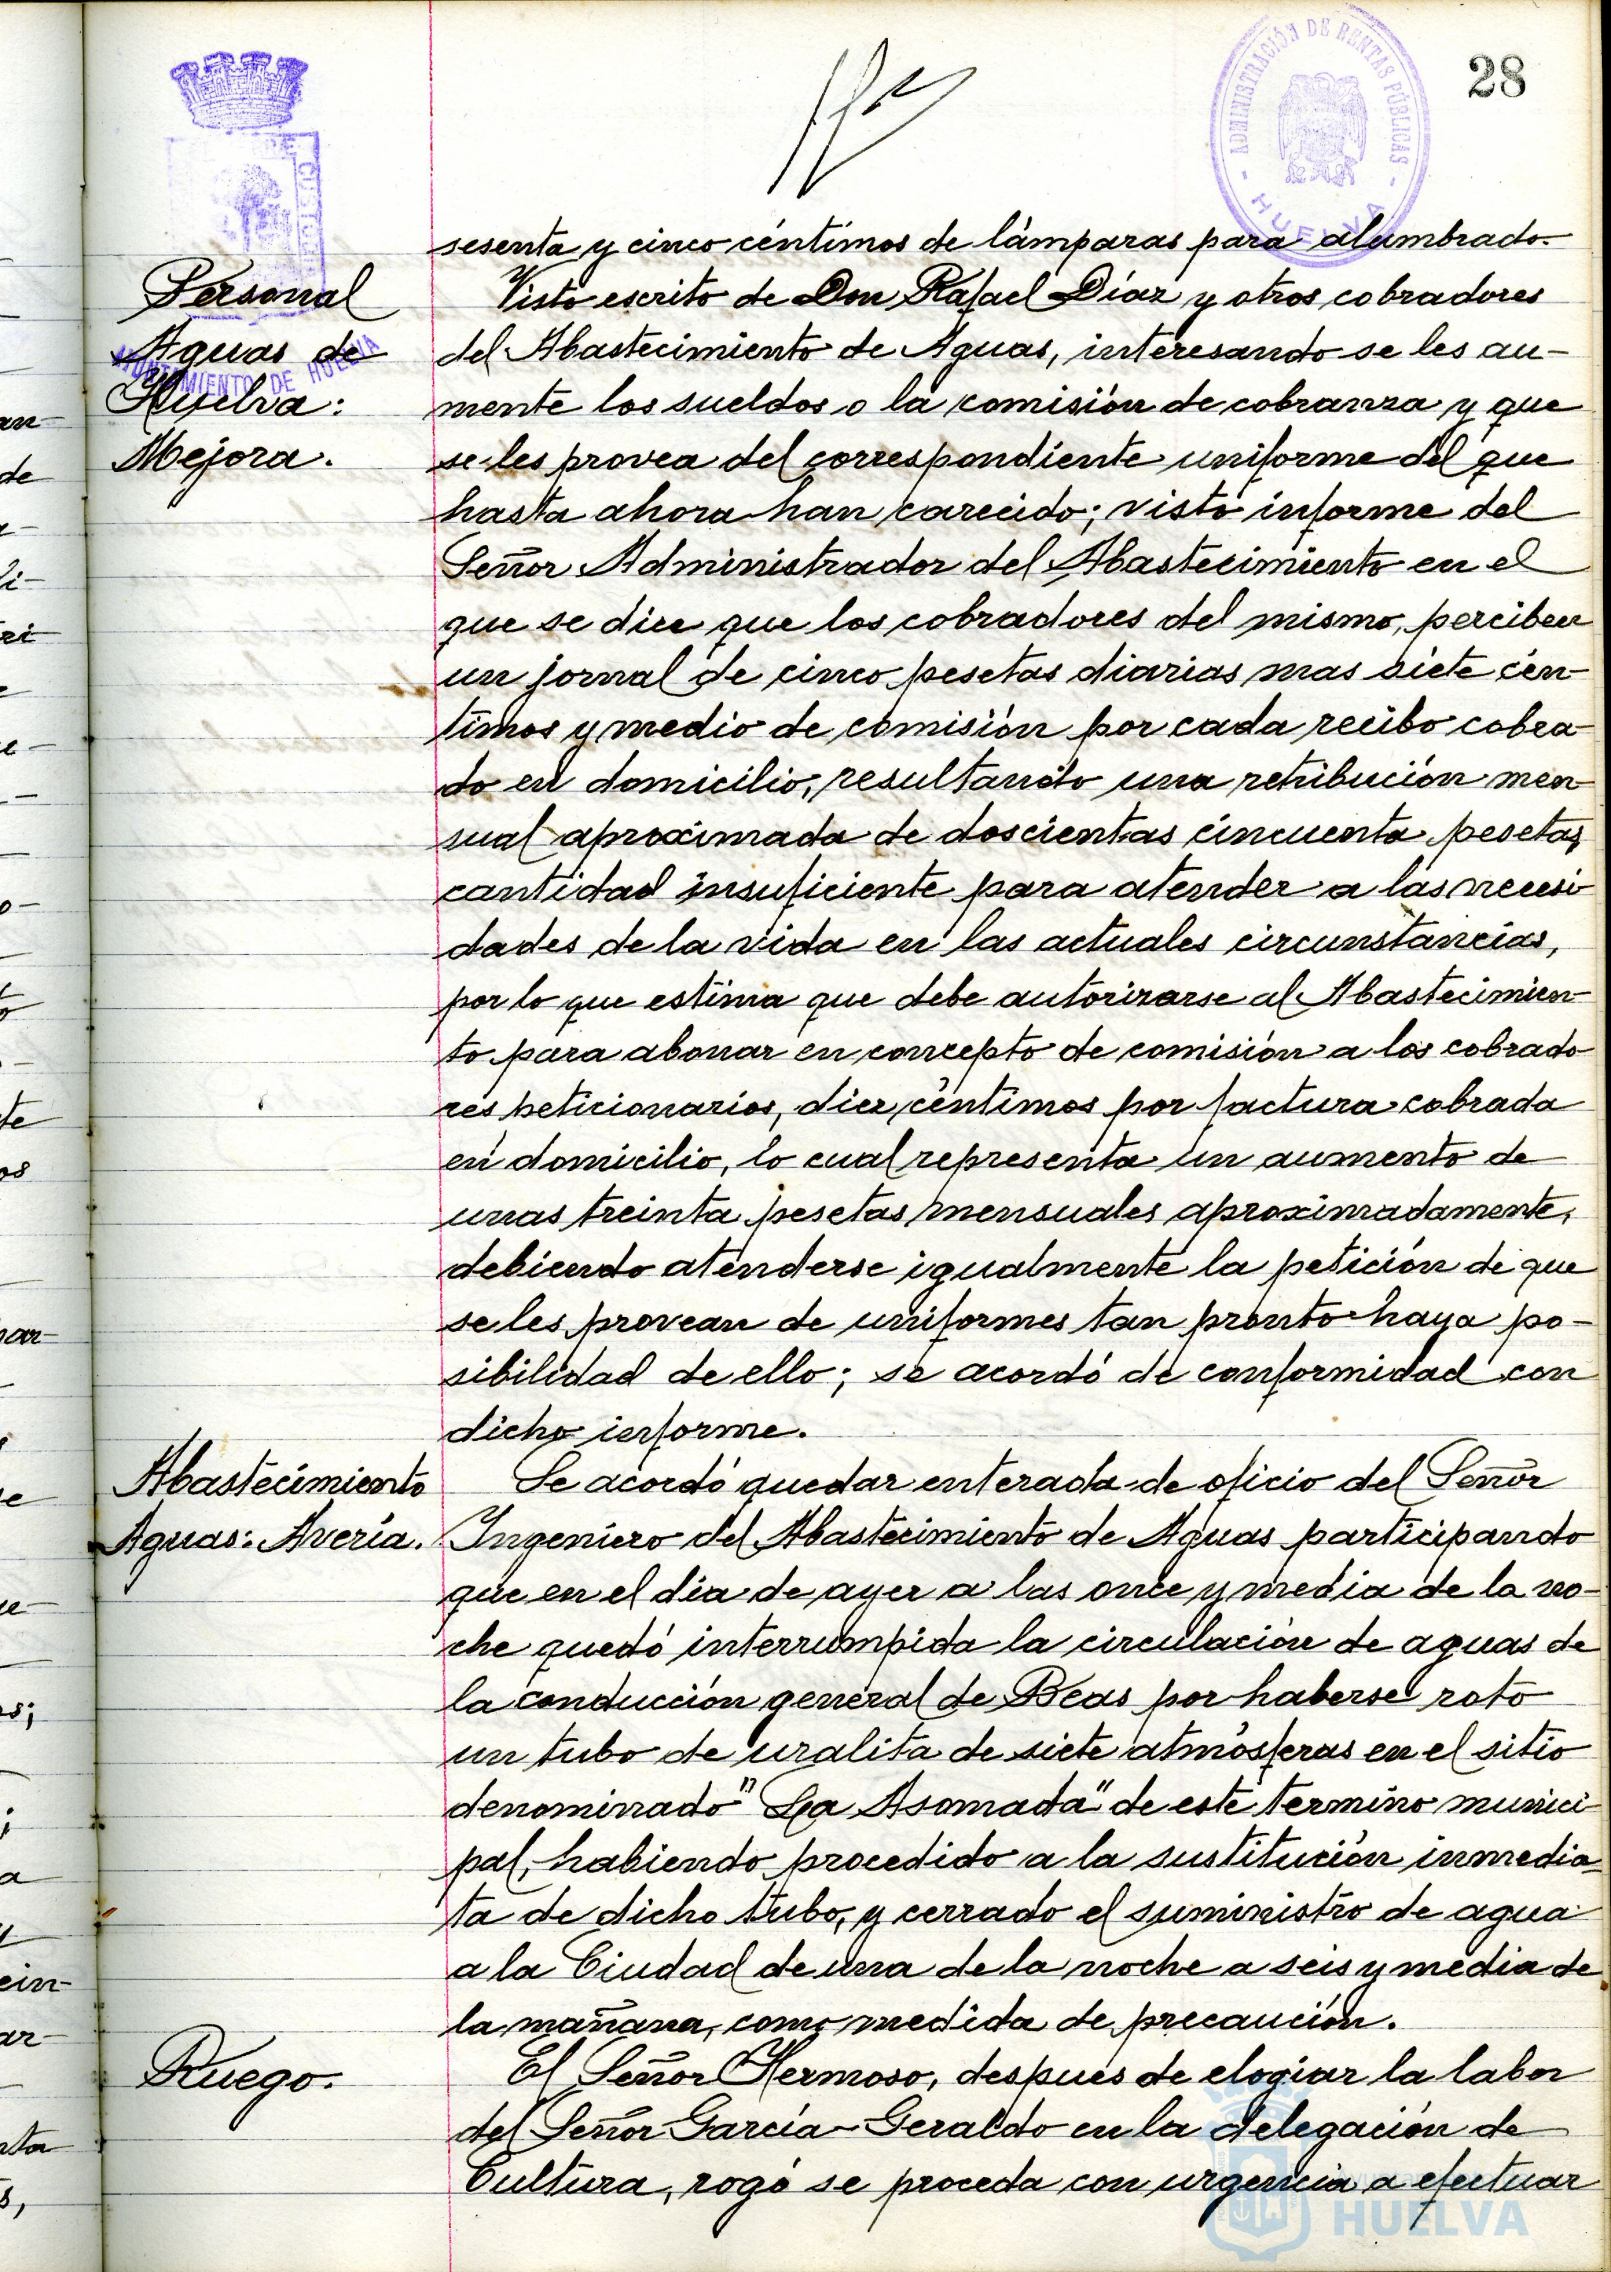 28
ADMINISTRACIÓN DE RENTAS PÚBLICAS
- HUELVA -
AYUNTAMIENTO DE HUELVA
sesenta y cinco céntimos de lámparas para alumbrado.
Personal
Aguas de
Huelva:
Mejora.
Visto escrito de Don Rafael Díaz y otros cobradores
del Abastecimiento de Aguas, interesando se les au-
mente los sueldos o la comisión de cobranza y que
se les provea del correspondiente uniforme del que
hasta ahora han carecido; visto informe del
Señor Administrador del Abastecimiento en el
que se dice que los cobradores del mismo, perciben
un jornal de cinco pesetas diarias mas siete cén-
timos y medio de comisión por cada recibo cobra-
do en domicilio, resultando una retribución men-
sual aproximada de doscientas cincuenta pesetas,
cantidad insuficiente para atender a las necesi-
dades de la vida en las actuales circunstancias,
por lo que estima que debe autorizarse al Abastecimien-
to para abonar en concepto de comisión a los cobrado-
res peticionarios, diez céntimos por factura cobrada
en domicilio, lo cual representa un aumento de
unas treinta pesetas mensuales aproximadamente,
debiendo atenderse igualmente la petición de que
se les provean de uniformes tan pronto haya po-
sibilidad de ello; se acordó de conformidad con
dicho informe.
Abastecimiento
Aguas: Avería.
Se acordó quedar enterada de oficio del Señor
Ingeniero del Abastecimiento de Aguas participando
que en el día de ayer a las once y media de la no-
che quedó interrumpida la circulación de aguas de
la conducción general de Beas por haberse roto
un tubo de uralita de siete atmósferas en el sitio
denominado "La Asomada" de este termino munici-
pal, habiendo procedido a la sustitución inmedia-
ta de dicho tubo, y cerrado el suministro de agua
a la Ciudad de una de la noche a seis y media de
la mañana, como medida de precaución.
Ruego.
El Señor Hermoso, después de elogiar la labor
del Señor García-Geraldo en la delegación de
Cultura, rogó se proceda con urgencia a efectuar
HUELVA